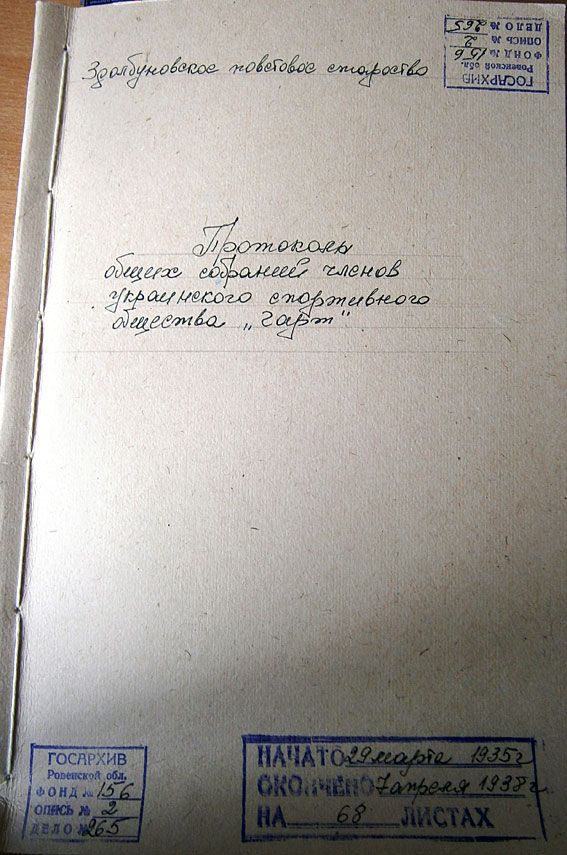 Здолбуновское повстовое староство
ГОСАРХИВ
Ровенской обл.
ФОНД № 156
ОПИСЬ № 2
ДЕЛО № 265
Протоколы
общих собраний членов
украинского спортивного
общества „Гарт"
ГОСАРХИВ
Ровенской обл.
ФОНД № 156
ОПИСЬ № 2
ДЕЛО № 265
НАЧАТО 29 марта 1935 г
ОКОНЧЕНО 7 апреля 1938 г.
НА 68 ЛИСТАХ